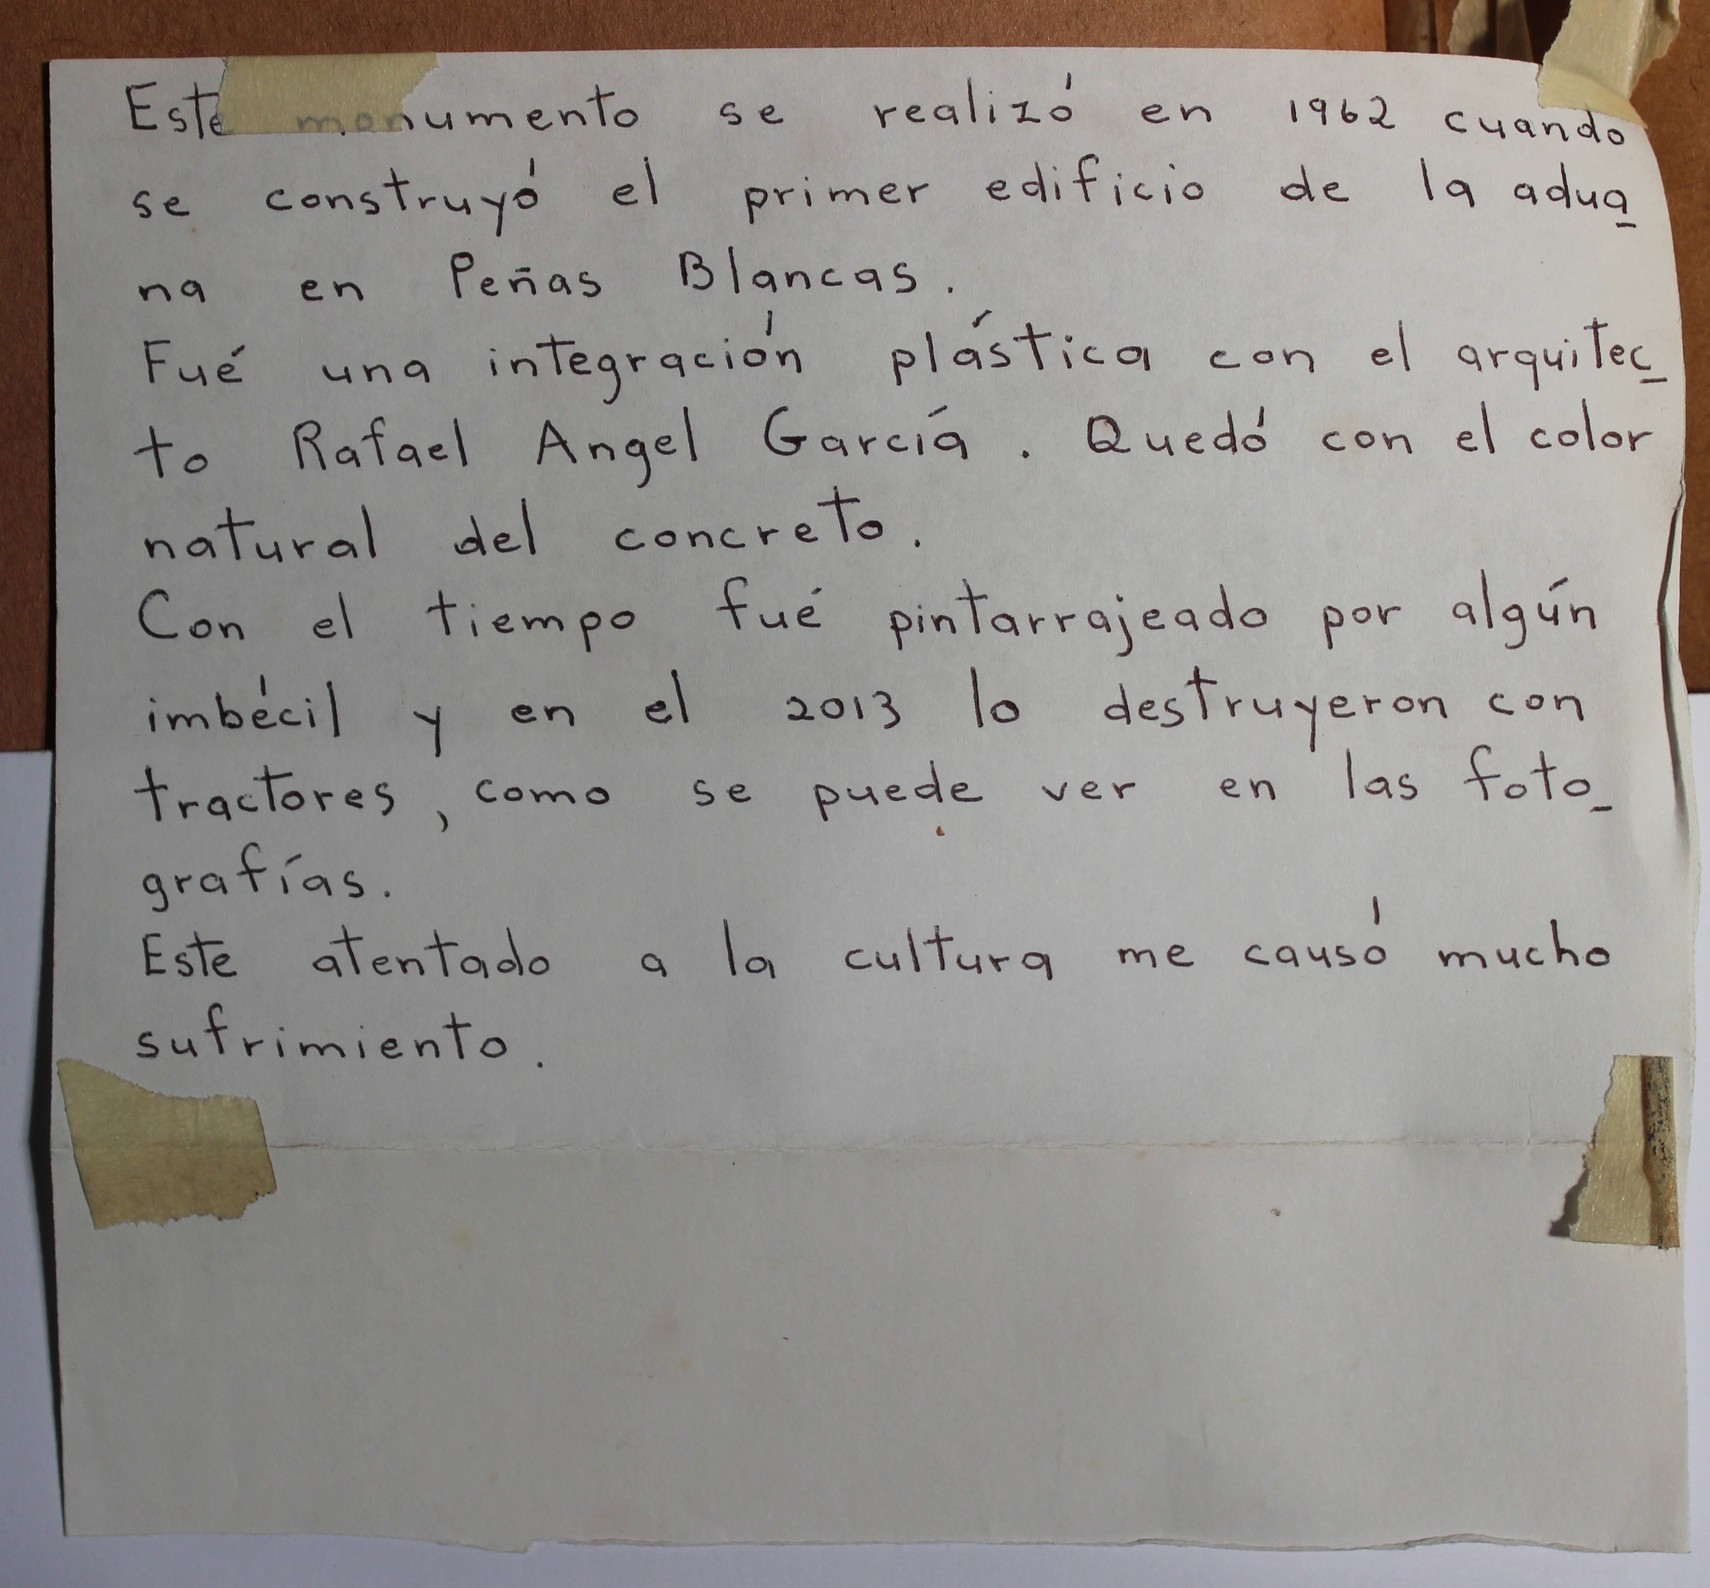 Este monumento se realizó en 1962 cuando
se construyó el primer edificio de la adua_
na en Peñas Blancas.
Fué una integración plástica con el arquitec_
to Rafael Angel García. Quedó con el color
natural del concreto.
Con el tiempo fué pintarrajeado por algún
imbécil y en el 2013 lo destruyeron con
tractores, como se puede ver en las foto_
grafías.
Este atentado a la cultura me causó mucho
sufrimiento.